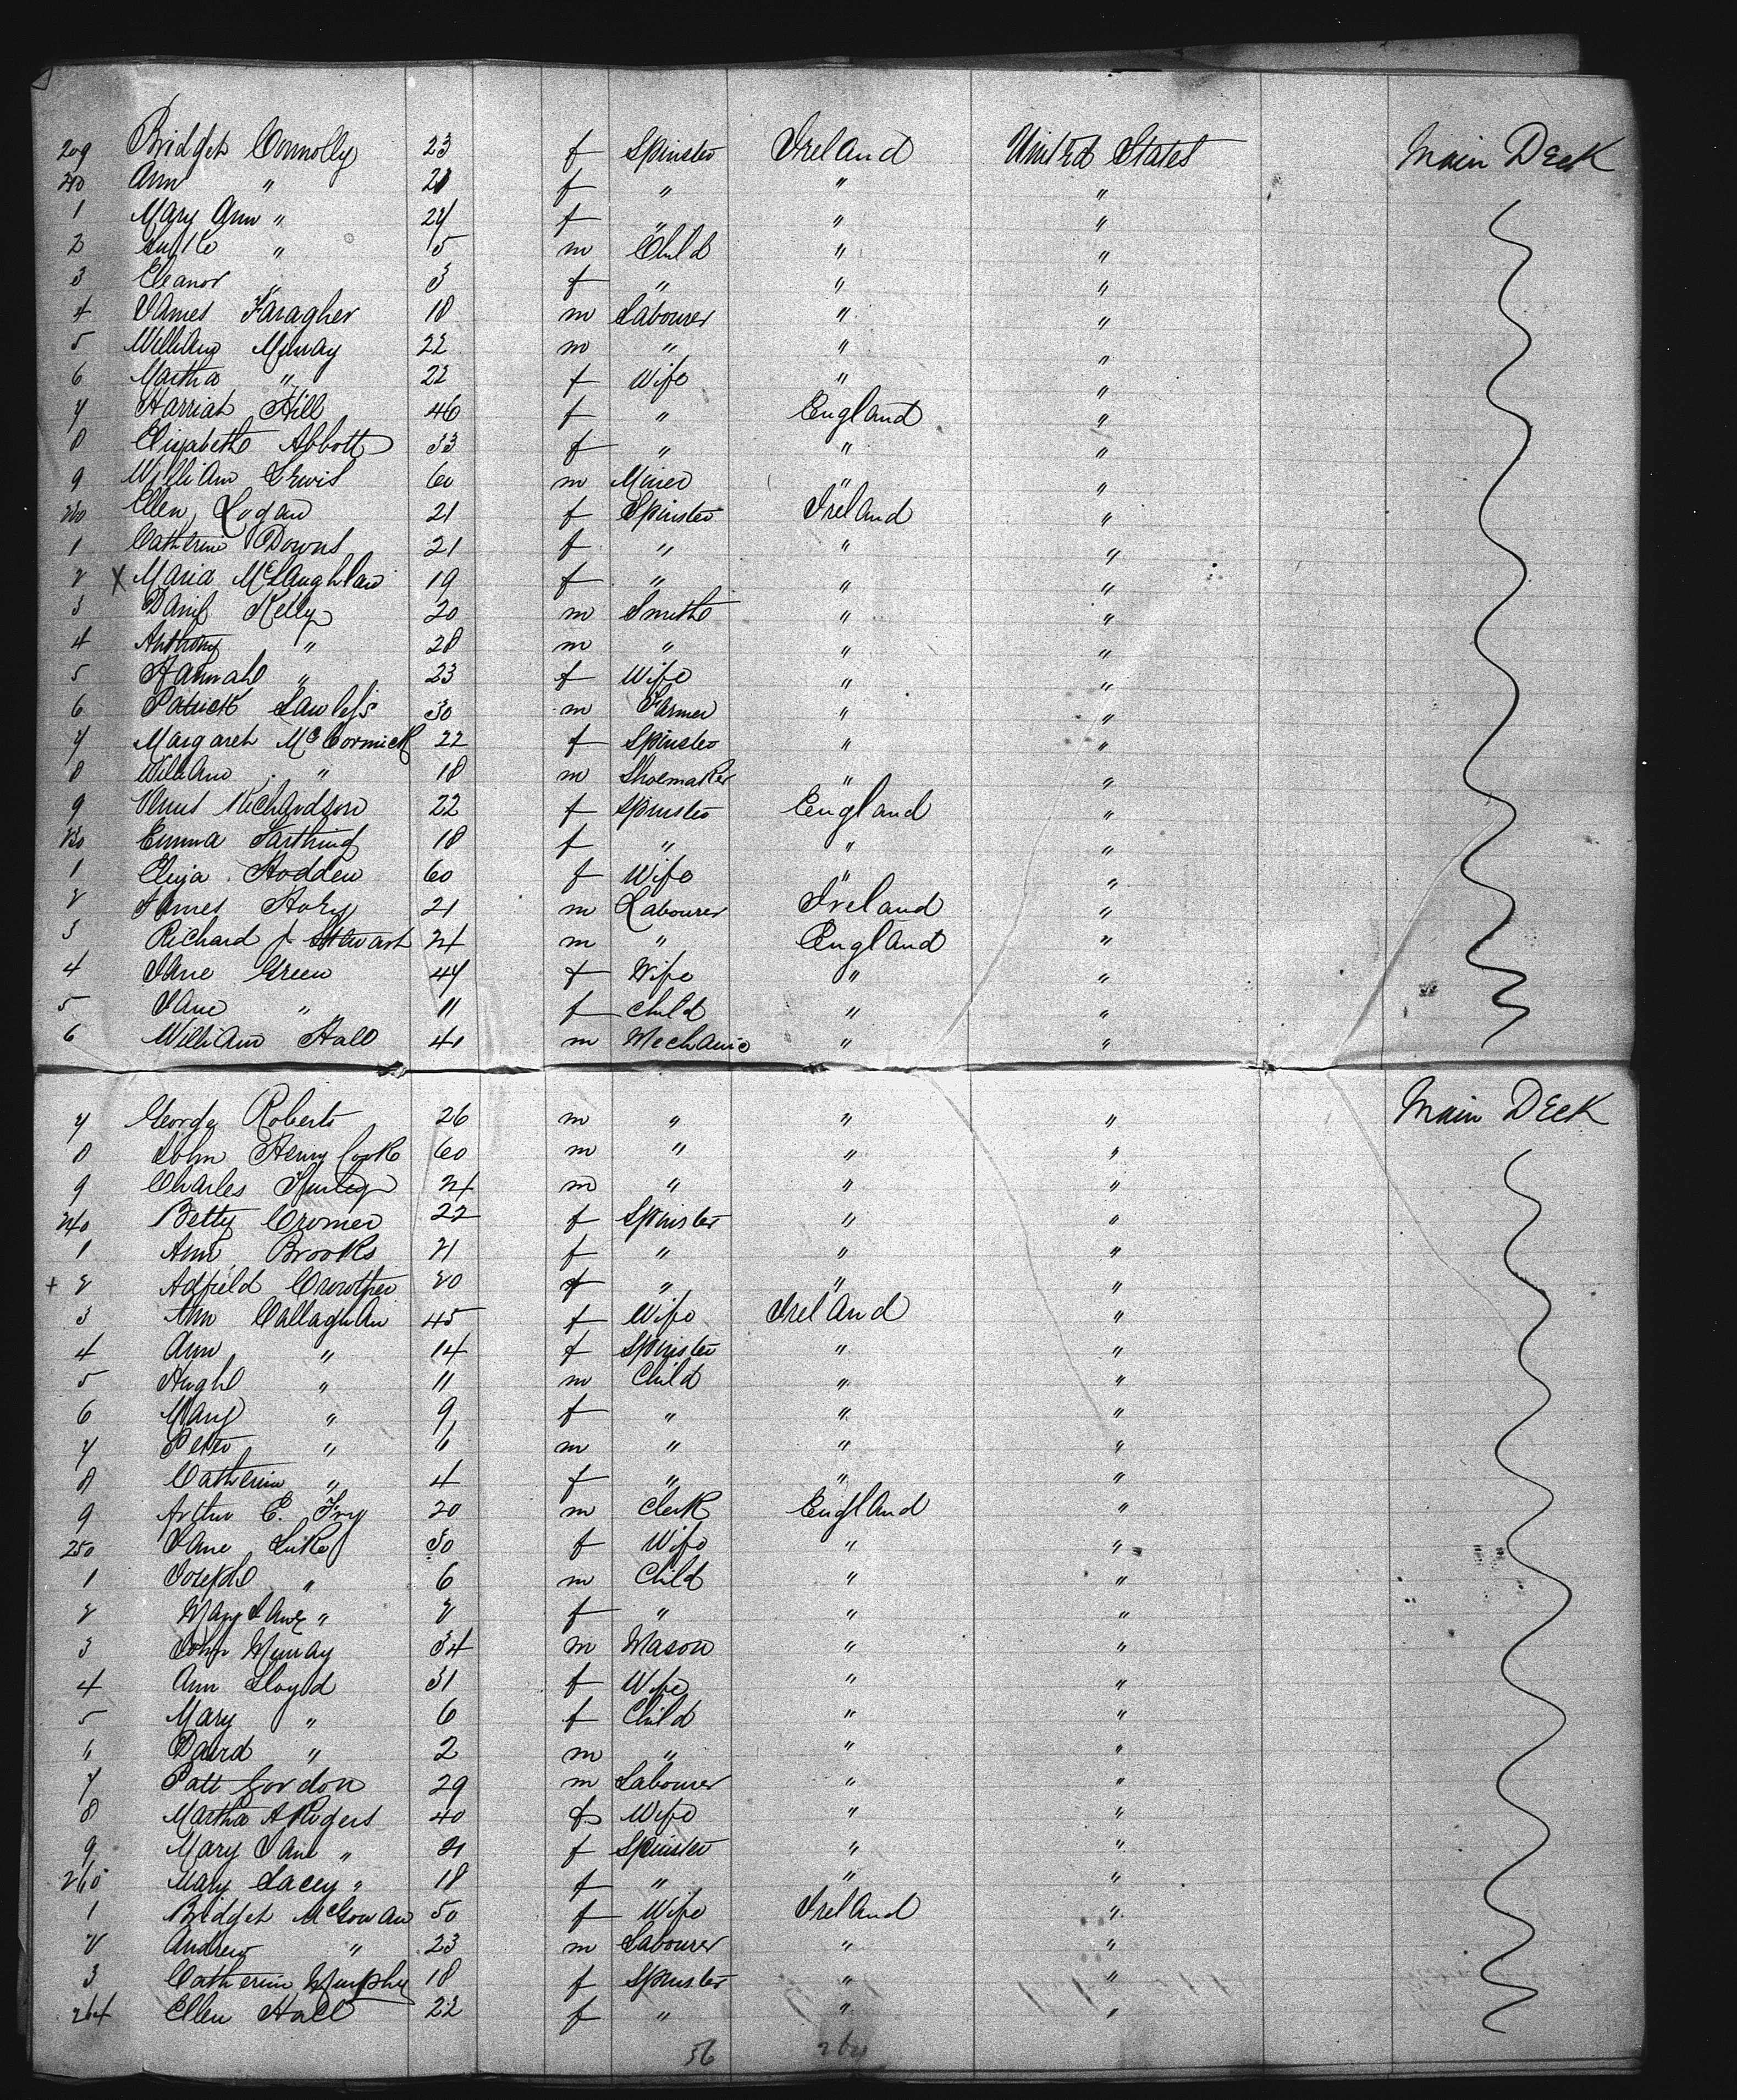 209 Bridget Connolly 23 f Spinster Ireland United States Main Deck
210 Ann " 21 f " " "
1 Mary Ann " 24 f " " "
2 " 5 m Child " "
3 Eleanor " 3 f " " "
4 James Faragher 18 m Labourer " "
5 William Murray 22 m " " "
6 Martha " 22 f Wife " "
7 Harriah Hill 46 f " England "
8 Elizabeth Abbott 33 f " " "
9 William Lewis 60 m Miner " "
220 Ellen Logan 21 f Spinster Ireland "
1 Catherine Downs 21 f " " "
2 X Maria McLaughlan 19 f " " "
3 Danil Kelly 20 m Smith " "
4 Anthony " 28 m " " "
5 Hannah " 23 f Wife " "
6 Patrick Lawless 30 m Farmer " "
7 Margaret McCormick 22 f Spinster " "
8 William " 18 m Shoemaker " "
9 Venus Richardson 22 f Spinster England "
230 Emma Farthing 18 f " " "
1 Eliza Hodden 60 f Wife " "
2 James Hoey 21 m Labourer Ireland "
3 Richard J Stewart 24 m " England "
4 Jane Green 47 f Wife " "
5 Jane " 11 f Child " "
6 William Hall 41 m Mechanic " "
7 George Roberts 26 m " " " Main Deck
8 John Henry Cook 60 m " " "
9 Charles 24 m " " "
240 Betty Cromer 22 f Spinster " "
1 Ann Brooks 21 f " " "
+ 2 Adfield Crowther 20 f " " "
3 Ann Callaghan 45 f Wife Ireland "
4 Ann " 14 f Spinster " "
5 Hugh " 11 m Child " "
6 Mary " 9 f " " "
7 Peter " 6 m " " "
8 Catherine " 4 f " " "
9 Arthur E. Fry 20 m Clerk England "
250 Jane Luke 30 f Wife " "
1 Joseph " 6 m Child " "
2 Mary Jane " 2 f " " "
3 John Murray 34 m Mason " "
4 Ann Lloyd 31 f Wife " "
5 Mary " 6 f Child " "
6 David " 2 m " " "
7 Patt Gordon 29 m Labourer " "
8 Martha A Rogers 40 f Wife " "
9 Mary Jane " 21 f Spinster " "
260 Mary Lacey " 18 f " " "
1 Bridget McGowan 50 f Wife Ireland "
2 Andrew " 23 m Labourer " "
3 Catherine Murphy 18 f Spinster " "
264 Ellen Hall 22 f " " "
56 264